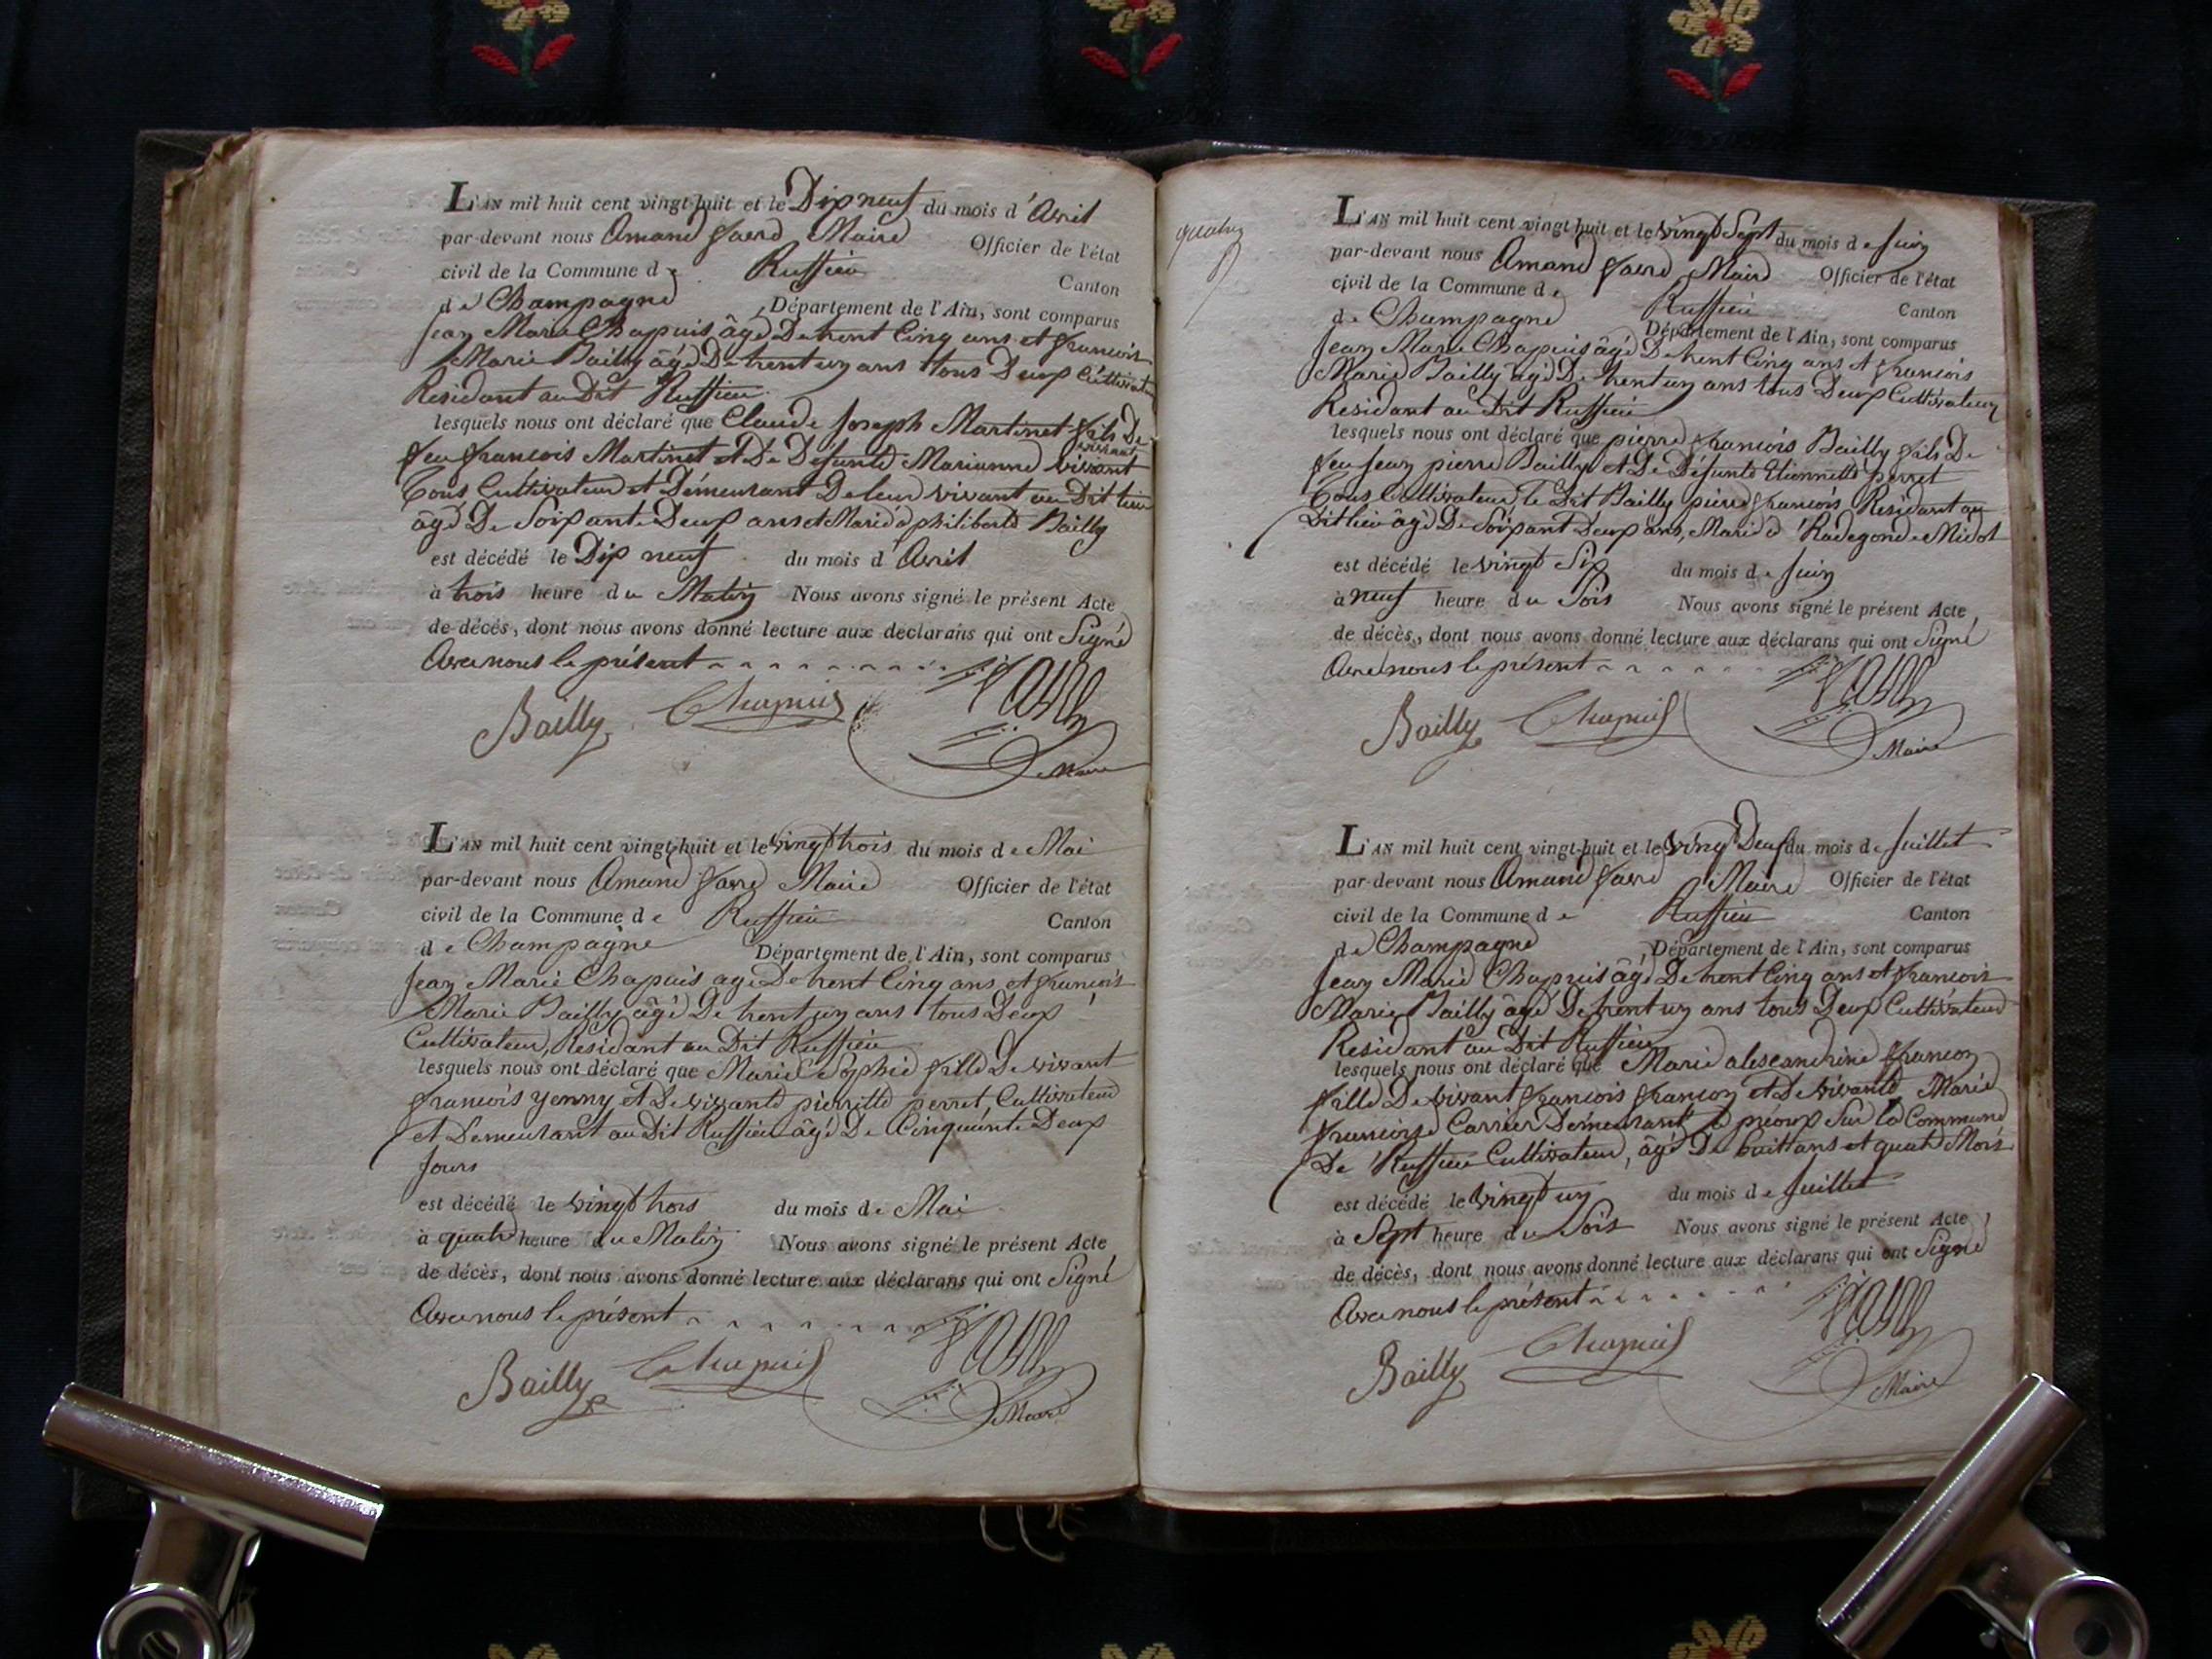 L'AN mil huit cent vingt-huit et le Dix neuf du mois d'Avril
par-devant nous Amand favre Maire Officier de l'état
civil de la Commune de Ruffieu Canton
de Champagne Département de l'Ain, sont comparus
Jean Marie Chapuis âgé De trent Cinq ans et francois
Marie Bailly âgé De trent un ans tous Deux Cultivateur
Residant au Dit Ruffieu
lesquels nous ont déclaré que Claude Joseph Martinet fils De
feu francois Martinet et De Defunte Marianne vivant
Tous Cultivateur et Démeurant De leur vivant au Dit lieu
âgé De Soixante Deux ans et Marié à philiberte Bailly
est décédé le Dix neuf du mois d'Avril
à trois heure du Matin Nous avons signé le présent Acte
de décès, dont nous avons donné lecture aux déclarans qui ont Signé
Avec nous le présent
Bailly Chapuis favre
Maire
L'AN mil huit cent vingt-huit et le vingt trois du mois de Mai
par-devant nous Amand favre Maire Officier de l'état
civil de la Commune de Ruffieu Canton
de Champagne Département de l'Ain, sont comparus
Jean Marie Chapuis age De trent Cinq ans et francois
Marie Bailly âgé De trent un ans tous Deux
Cultivateur, Residant au Dit Ruffieu
lesquels nous ont déclaré que Marie Sophie fille De vivant
francois yenny et De vivante pierrette perret Cultivateur
et Demeurant au Dit Ruffieu âgé De Cinquante Deux
Jours
est décédé le vingt trois du mois de Mai
à quatre heure du Matin Nous avons signé le présent Acte
de décès, dont nous avons donné lecture aux déclarans qui ont Signé
Avec nous le présent
Bailly Chapuis favre
Maire
quatre
L'AN mil huit cent vingt-huit et le vingt Sept du mois de Juin
par-devant nous Amand favre Maire Officier de l'état
civil de la Commune de Ruffieu Canton
de Champagne Département de l'Ain, sont comparus
Jean Marie Chapuis âgé De trent Cinq ans et francois
Marie Bailly âgé De trent un ans tous Deux Cultivateur
Residant au Dit Ruffieu
lesquels nous ont déclaré que pierre francois Bailly fils De
feu Jean pierre Bailly et De Défunte Etiennette perret
Tous Cultivateur, le Dit Bailly pierre francois Residant au
Dit lieu âgé De Soixant Deux ans, Marié à Radegonde Midol
est décédé le vingt Six du mois de Juin
à neuf heure du Soir Nous avons signé le présent Acte
de décès, dont nous avons donné lecture aux déclarans qui ont Signé
Avec nous le présent
Bailly Chapuis favre
Maire
L'AN mil huit cent vingt-huit et le vingt Deux du mois de Juillet
par-devant nous Amand favre Maire Officier de l'état
civil de la Commune de Ruffieu Canton
de Champagne Département de l'Ain, sont comparus
Jean Marie Chapuis âgé De trent Cinq ans et francois
Marie Bailly âgé De trent un ans tous Deux Cultivateur
Residant au Dit Ruffieu
lesquels nous ont déclaré que Marie alexandrine francon
fille De vivant francois francon et De vivante Marie
francoise Carrier Démeurant à préoux Sur la Commune
De Ruffieu Cultivateur, âgé De huitt ans et quatre Mois
est décédé le vingt un du mois de Juillet
à Sept heure du Soir Nous avons signé le présent Acte
de décès, dont nous avons donné lecture aux déclarans qui ont Signé
Avec nous le présent
Bailly Chapuis favre
Maire